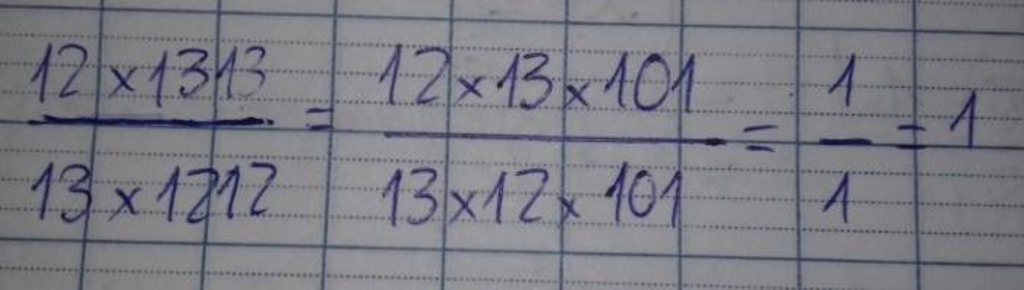 12 × 1313 / 13 × 1212 = 12 × 13 × 101 / 13 × 12 × 101 = 1 / 1 = 1